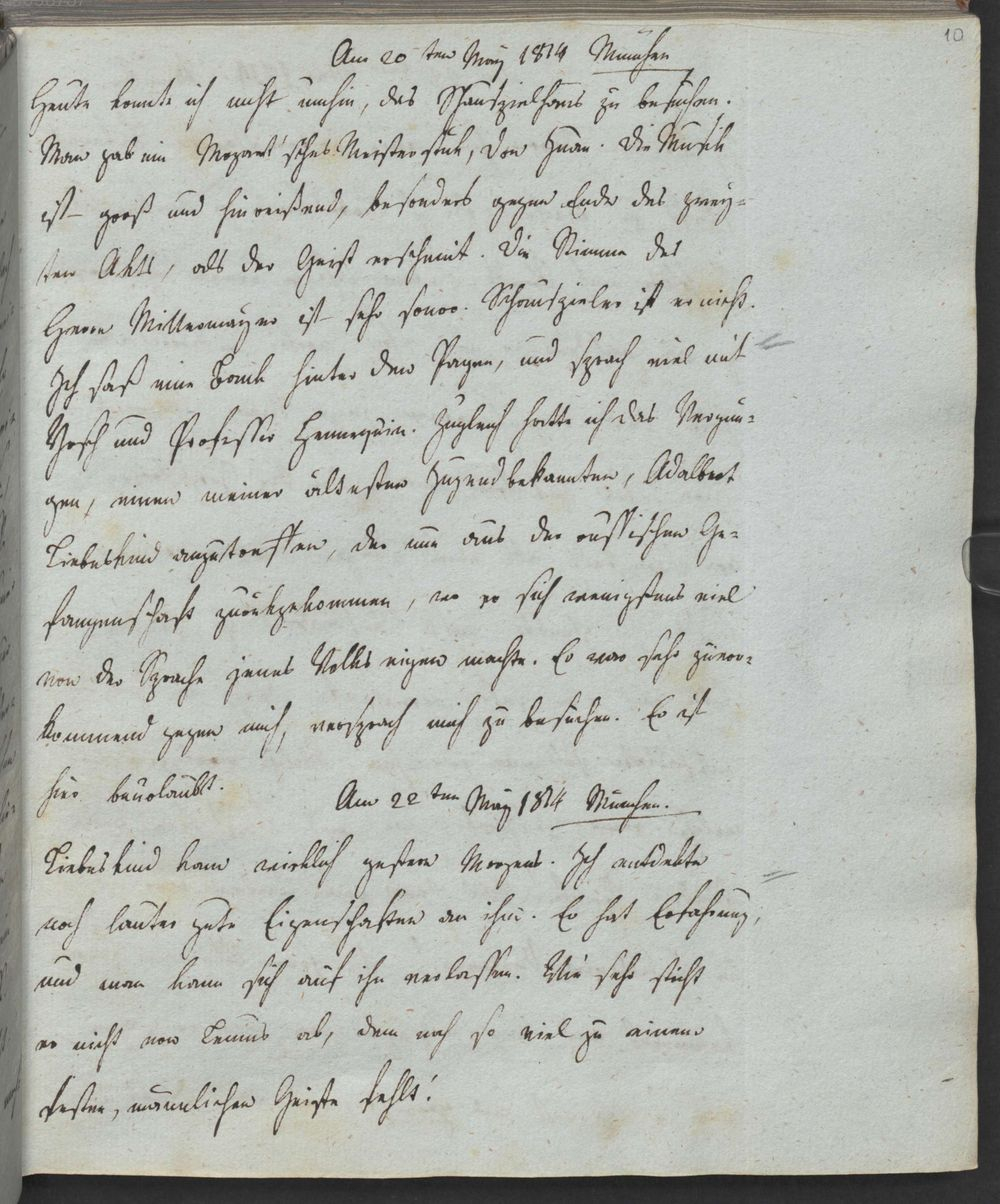 10
Am 20 ten May 1814 München
Heute konnte ich nicht umhin, das Schauspielhaus zu besuchen.
Man gab ein Mozart'sches Meisterstük, Don Juan. Die Musik
ist groß und hinreißend, besonders gegen Ende des zwey-
ten Akts, als der Geist erscheint. Die Stimme des
Herrn Mittermayer ist sehr sonor. Schauspieler ist er nicht.
Ich saß eine Bank hinter den Pagen, und sprach viel mit
und Professor Hennequin. Zugleich hatte ich das Vergnü-
gen, einen meiner ältesten Jugendbekannten, Adalbert
Liebeskind anzutreffen, der nun aus der russischen Ge-
fangenschaft zurükgekommen, wo er sich wenigstens viel
von der Sprache jenes Volks eigen machte. Er war sehr zuvor-
kommend gegen mich, versprach mich zu besuchen. Er ist
hier beurlaubt.
Am 22 ten May 1814 München.
Liebeskind kam wirklich gestern Morgens. Ich entdekte
noch lauter gute Eigenschaften an ihm. Er hat Erfahrung,
und man kann sich auf ihn verlassen. Wie sehr sticht
er nicht von ab, dem noch so viel zu einem
festen, männlichen Geiste fehlt!